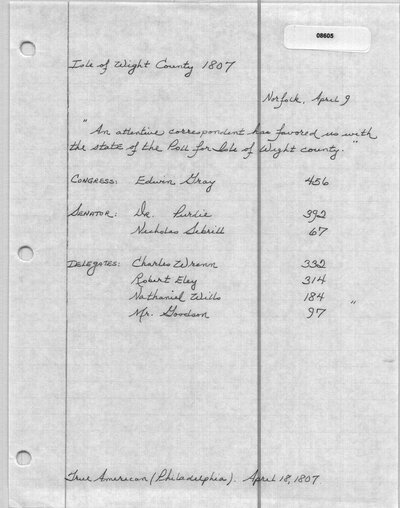 08605
Isle of Wight County 1807
Norfolk, April 9
"An attentive correspondent has favored us with
the state of the Poll for Isle of Wight county."
CONGRESS: Edwin Gray 456
SENATOR: Dr. Purdie 392
Nicholas Sebrill 67
DELEGATES: Charles Wrenn 332
Robert Eley 314
Nathaniel Wills 184 "
Mr. Goodson 97
True American (Philadelphia). April 18, 1807.